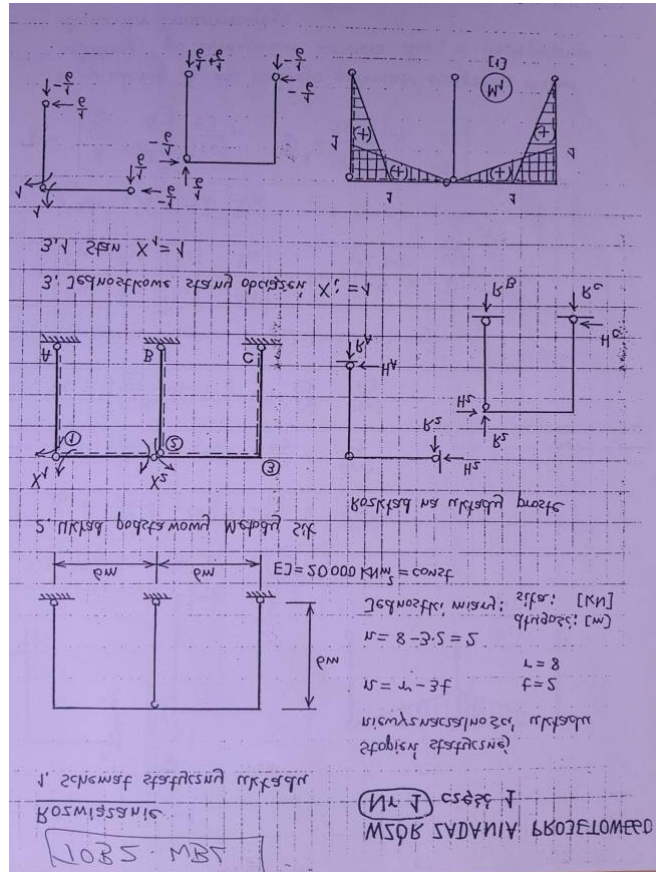 TOB2 - MBL
WZÓR ZADANIA PROJETOWEGO
Nr 1 część 1
Rozwiązanie
1. Schemat statyczny układu
Stopień statycznej
niewyznaczalności układu
n = r - 3t
t = 2
r = 8
n = 8 - 3·2 = 2
Jednostki miary: siła: [kN]
długość: [m]
6m
6m
6m
EJ = 20 000 kNm² = const
2. Układ podstawowy Metody Sił
Rozkład na układy proste
X₁
X₂
1
2
3
A
B
C
R₂
H₂
R_A
H_A
H₂
R₂
R_B
R_C
H_C
3. Jednostkowe stany obciążeń Xᵢ = 1
3.1 Stan X₁ = 1
1
1
1/6
-1/6
-1/6
1/6
-1/6
1/6
1/6+1/6
-1/6
-1/6
1
1
1
1
(+)
(+)
(+)
(+)
M₁
[1]